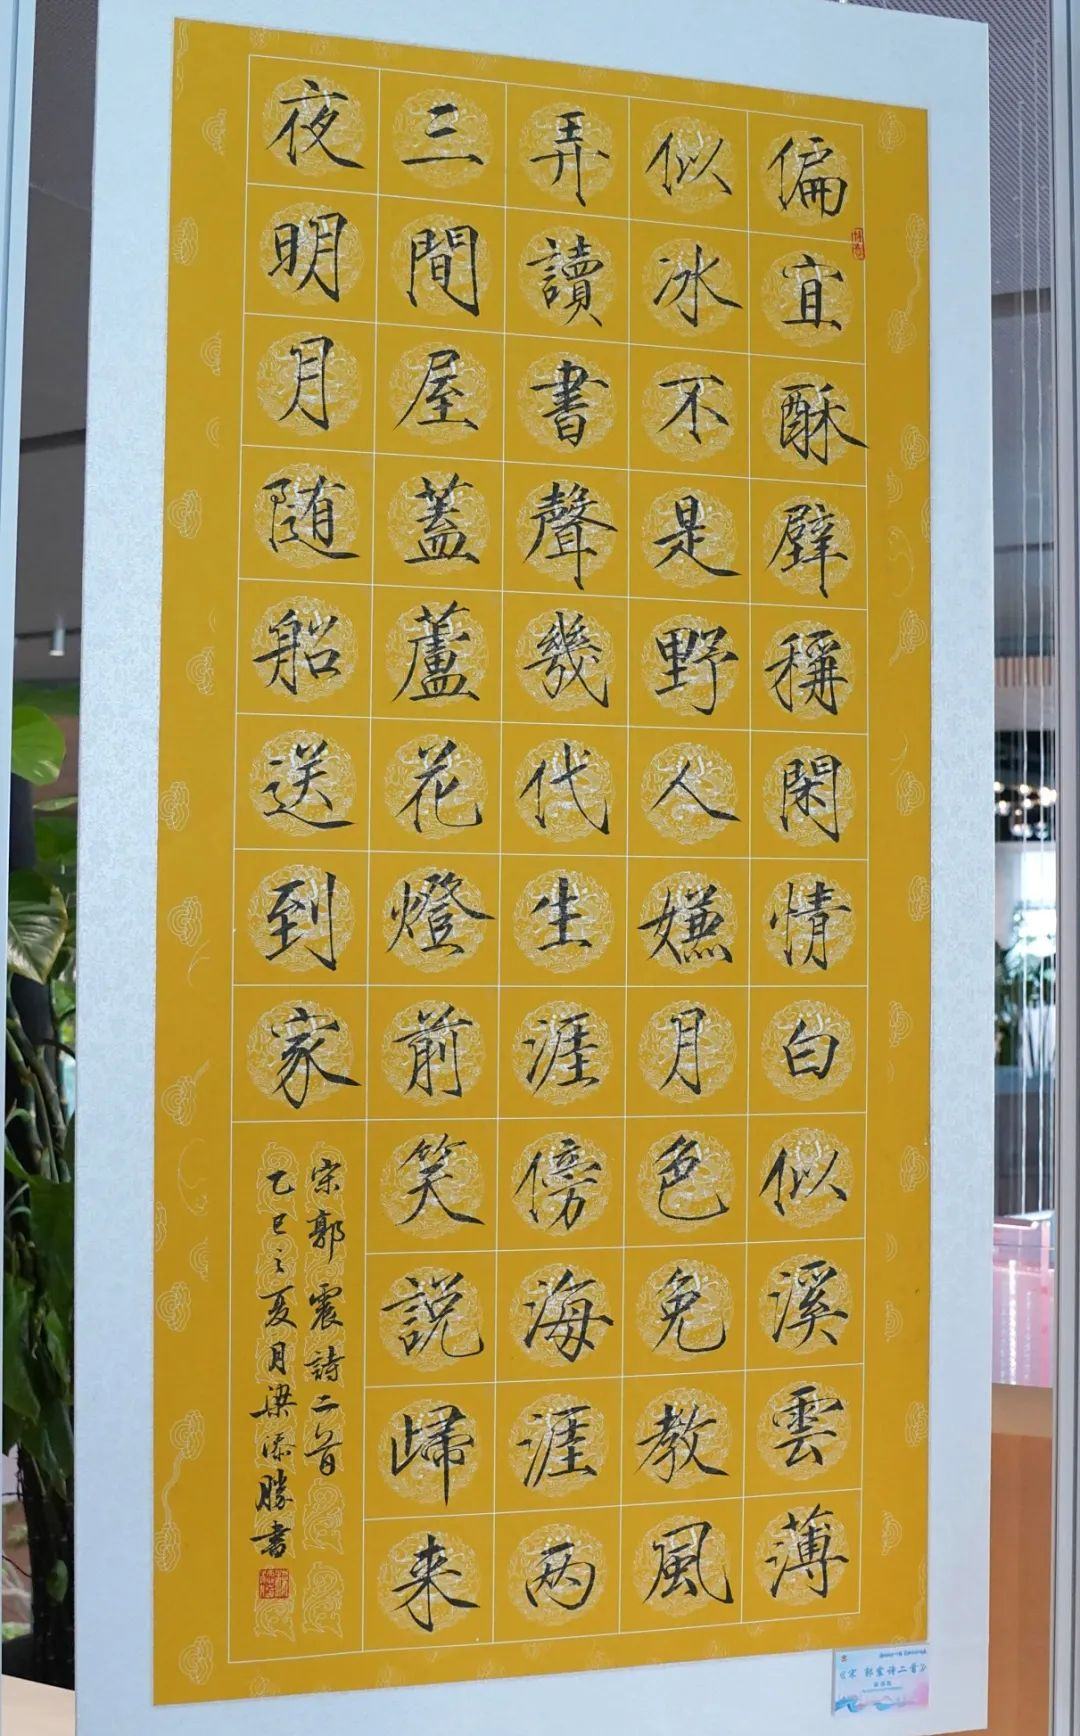 偏宜酥壁稱閑情白似溪雲薄
似冰不是野人嫌月色免教風
弄讀書聲幾代生涯傍海涯两
三間屋蓋蘆花燈前笑説歸来
夜明月随船送到家
宋郭震詩二首
乙巳之夏月梁添勝書
《宋 郭震诗二首》